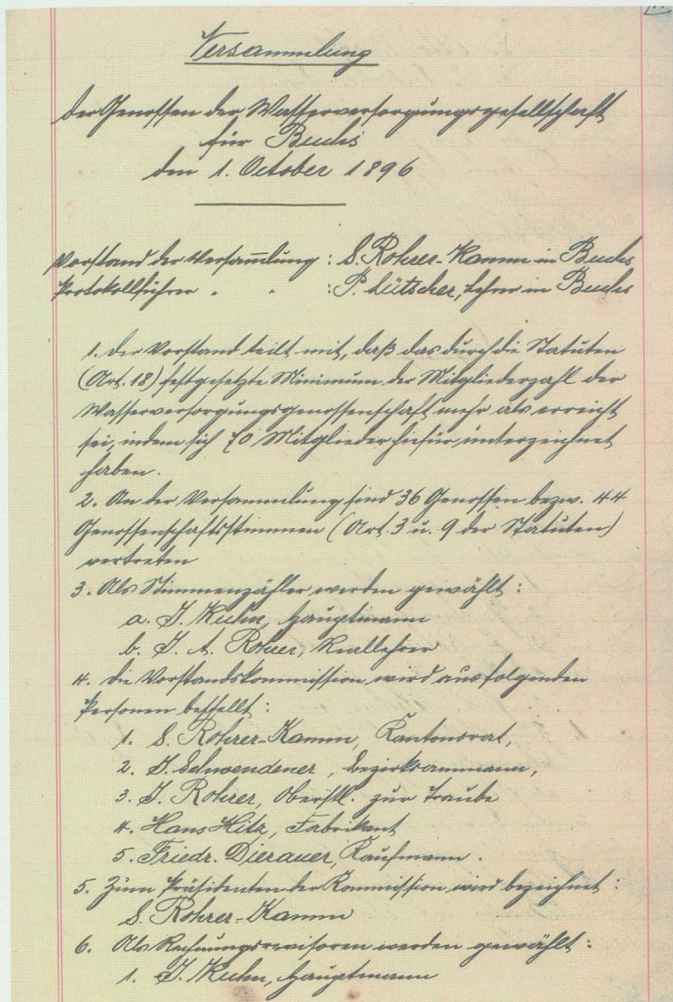 Versammlung
der Genossen der Wasserversorgungsgesellschaft
für Buchs
den 1. October 1896
Vorstand der Versam̅lung: S. Rohrer-Kamm in Buchs
Protokollführer " " : P. Lütscher, Lehrer in Buchs
1. Der Vorstand teilt mit, daß das durch die Statuten
(Art. 18) festgesetzte Minimum der Mitgliederzahl der
Wasserversorgungsgenossenschaft mehr als erreicht
sei, indem sich 70 Mitglieder hiefür unterzeichnet
haben.
2. An der Versammlung sind 36 Genossen bezw. 44
Genossenschaftsstimmen (Art. 3 u. 9 der Statuten)
vertreten
3. Als Stimmenzähler werden gewählt:
a. J. Kuhn, Hauptmann
b. J. A. Rohrer, Reallehrer
4. Die Vorstandskommission wird aus folgenden
Personen bestellt:
1. S. Rohrer-Kamm, Kantonsrat,
2. J. Schwendener, Bezirksammann,
3. J. Rohrer, Oberstl. zur Traube
4. Hans Hitz, Fabrikant
5. Friedr. Dierauer, Kaufmann.
5. Zum Präsidenten der Kommission wird bezeichnet:
S. Rohrer-Kamm
6. Als Rechnungsrevisoren werden gewählt:
1. J. Kuhn, Hauptmann